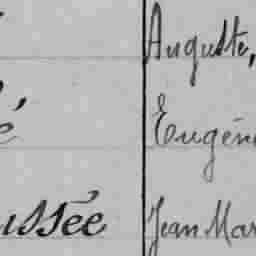 Auguste,
é Eugéni
ussée Jean Mar